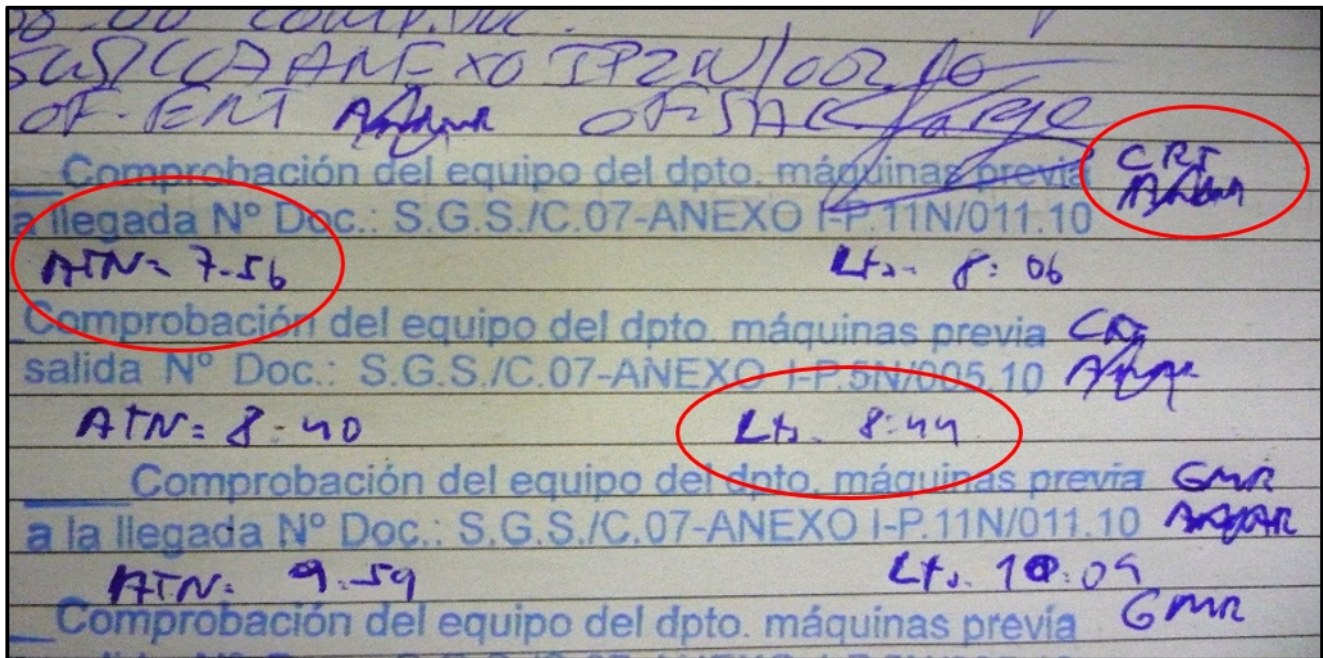 08-00 COMP. DOC.
SGS/C07 ANEXO IP2N/002.10
OF. ENT OF. SAC
__Comprobación del equipo del dpto. máquinas previa CRI
a llegada Nº Doc.: S.G.S./C.07-ANEXO I-P.11N/011.10
ATN= 7-56 Lts- 8:06
Comprobación del equipo del dpto. máquinas previa CRI
salida Nº Doc.: S.G.S./C.07-ANEXO I-P.5N/005.10
ATN= 8-40 Lts- 8:44
____Comprobación del equipo del dpto. máquinas previa GMR
a la llegada Nº Doc.: S.G.S./C.07-ANEXO I-P.11N/011.10
ATN= 9-59 Lts. 10:09
__Comprobación del equipo del dpto. máquinas previa GMR